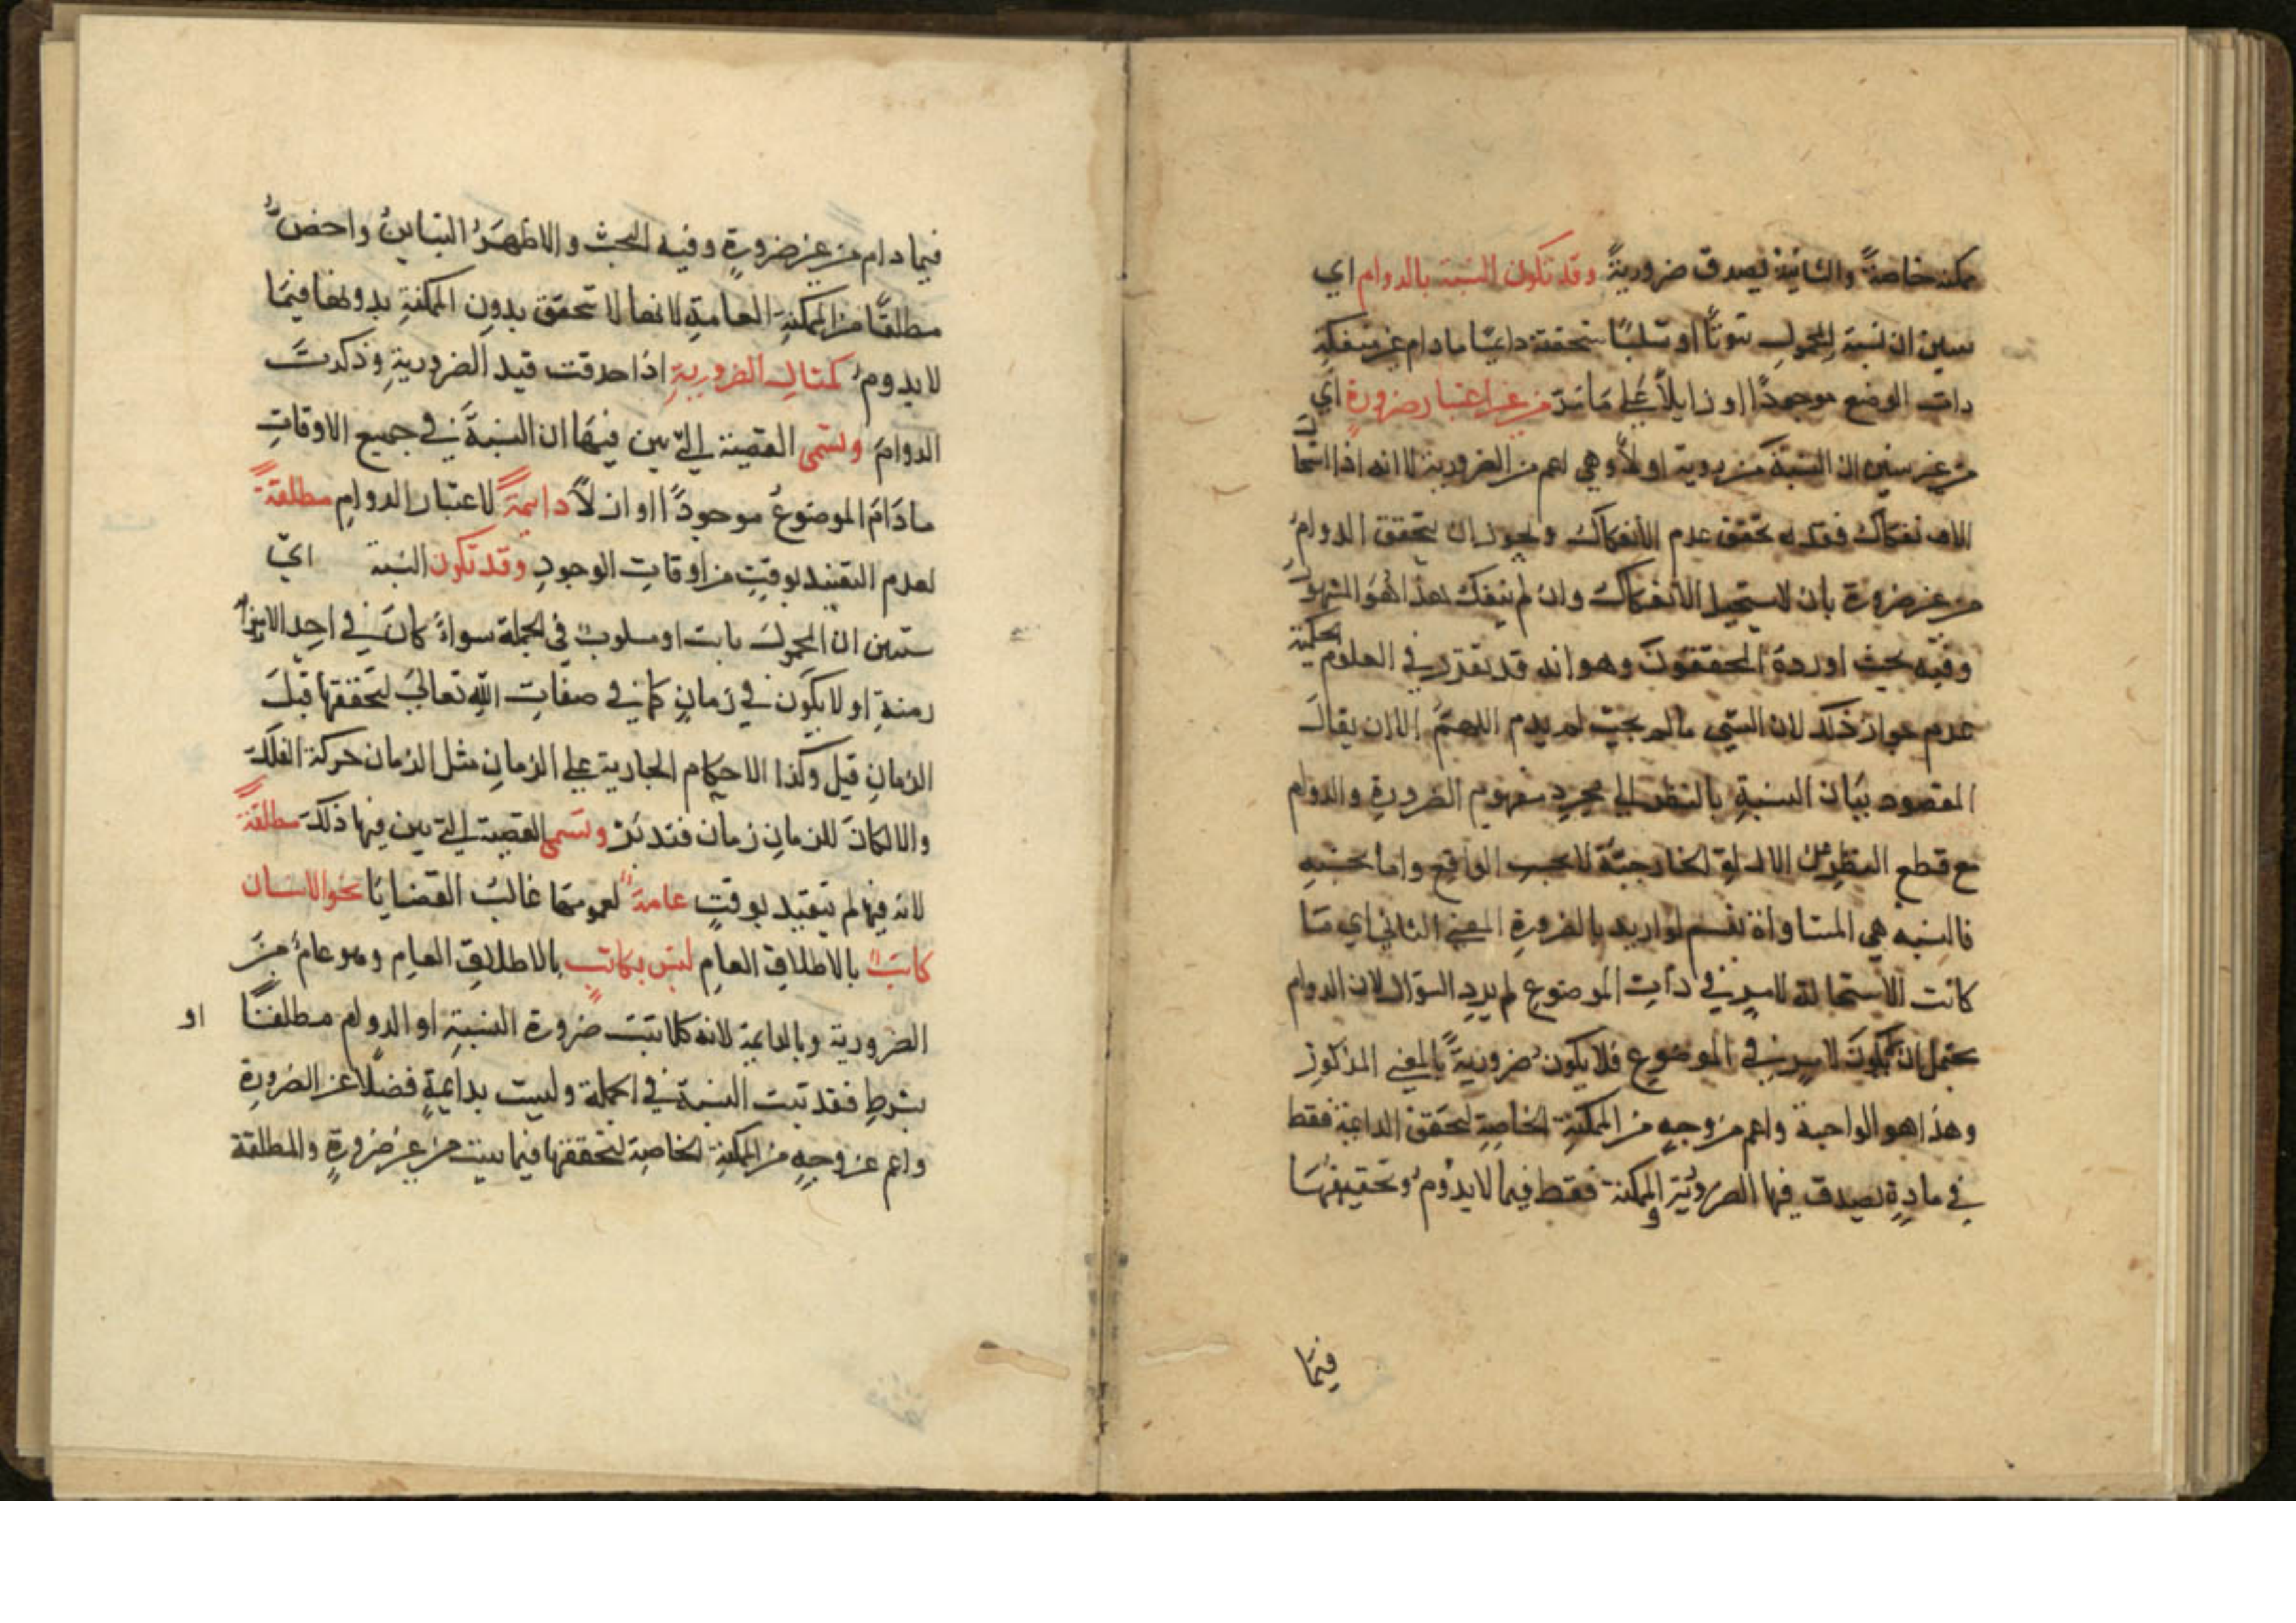 ممكنه خاصةً والثانية فيصدق ضروريةً وقد تكون النسبة بالدوام اي
ان نسبة المحمول ثبوتًا او سلبًا متحققة دايمًا مادام غير منفكةٍ
ذات الوضع موجودًا او زايلًا علي مَا مَرّ من غير اعتبار ضرورةٍ اي
من غير ان النسبة ضرورية او لًا وهي اعم من الضرورية لانه اذا استحا
الانفكاك فقد تحقق عدم الانفكاك ويجوز ان يتحقق الدوامُ
من غير ضرورة بان لا يستحيل الانفكاك وان لم ينفك هذا هُوَ المشهور
وفيه بحث اوردهُ المحققونَ وهو انه قد تقرر في العلوم الحكمية
عدم جواز ذلك لان الشي مالم يجب لم يدم اللهمَّ الا ان يقالَ
المقصود بيَان النسبةِ بالنظر الي مجردِ مفهوم الضرورةِ والدوام
مع قطع النظر عن الادلةِ الخارجيَّة لا بحسب الواقع واما بحسبهِ
فالنسبه هي المساواة نعم لو اريد بالضرورةِ المعني الثاني اي مَا
كانت الاستحالة لامرٍ في ذاتِ الموضوعِ لم يردِ السوال لان الدوام
يحتمل ان يكونَ لامرٍ في الموضوعِ فلا يكون ضروريةً بالمعني المذكورِ
وهذا هو الواجبة واعم من وجهٍ من الممكنةِ الخاصةِ لتحقق الدايمة فقط
في مادةٍ تصدق فيها الضروريَّة والممكنة فقط فيما لا يدومُ وتحقيقهَا
فيمَا
فيما دام من غير ضرورةٍ وفيه البحث والاظهرُ التباينُ واخصُّ
مطلقًا من الممكنةِ العامةِ لانها لا تحقق بدونِ الممكنةِ بدونها فيمَا
لا يدومُ كمثالِ الضروريةِ اذا حدفت قيد الضروريةِ وذكرتَ
الدوامَ وتسمى القضية التي بين فيهَا ان النسبةَ في جميع الاوقاتِ
مادَامَ الموضوعُ موجودًا او ان لًا دايمةً لاعتبار الدوامِ مطلقةً
لعدم التقييد بوقتٍ من اوقاتِ الوجودِ وقد تكون النسبة اي
ستبين ان المحمولَ ثابت او مسلوبٌ في الجملة سواءً كانَ في احدِ الا
زمنةِ او لا يكون في زمانٍ كما في صفاتِ اللهِ تعالي لتحققها قبلَ
الزمانِ قيل وكذا الاحكام الجارية علي الزمانِ مثل الزمان حركة الفلكِ
والا لكانَ للزمانِ زمان فتدبَّر وتسمى القضية التي بين فيها ذلك مطلقةً
لانه فيها لم يتقيد بوقتٍ عامةً لعمومهَا غالبُ القضايَا نحو الانسان
كاتبٌ بالاطلاقِ العامِ ليسَ بكاتبٍ بالاطلاقِ العامِ وهو عامٌ منَ
الضرورية وبالدايمة لانه كلما ثبت ضرورة النسبةِ او الدوام مطلقًا او
بشرطٍ فقد ثبت النسبة في الجملة وليست بدايمةٍ فضلًا عن الضرورةِ
واعم من وجهٍ من الممكنة الخاصة لتحققها فيما يثبت من غير ضرورةٍ والمطلقة